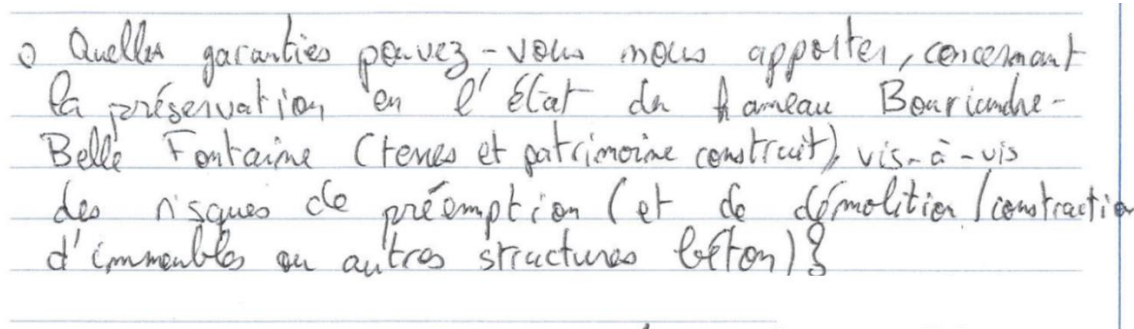 o Quelles garanties pouvez-vous nous apporter, concernant
la préservation en l'état du hameau Bouriande-
Belle Fontaine (terres et patrimoine construit), vis-à-vis
des risques de préemption (et de démolition/construction
d'immeubles ou autres structures béton)?